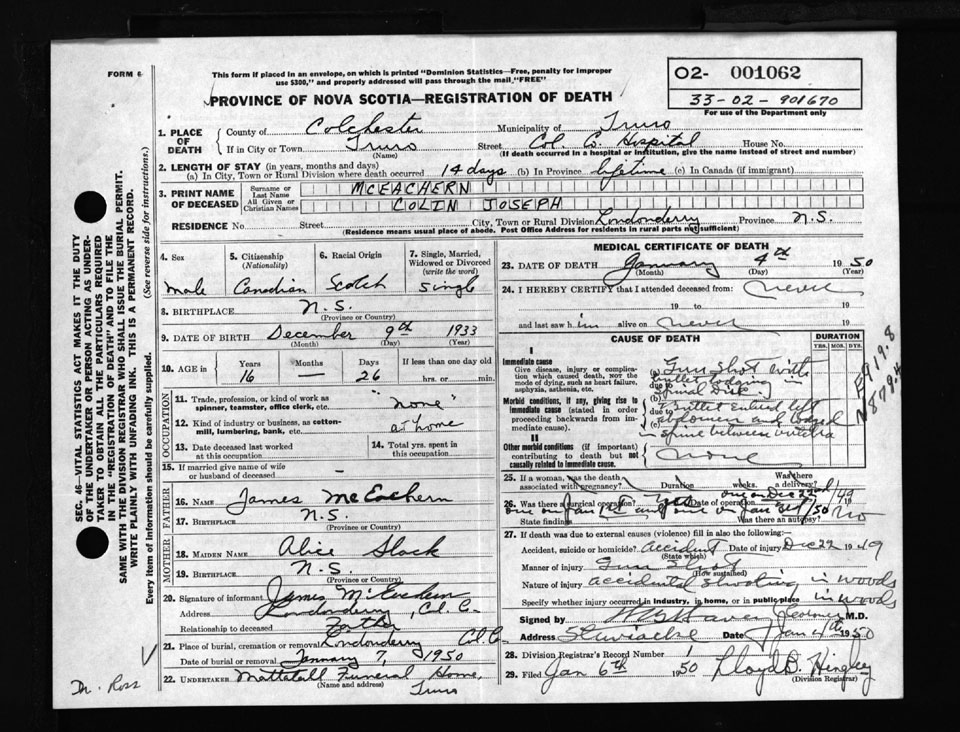 FORM 6
This form if placed in an envelope, on which is printed "Dominion Statistics—Free, penalty for improper
use $300," and properly addressed will pass through the mail "FREE"
PROVINCE OF NOVA SCOTIA—REGISTRATION OF DEATH
O2- 001062
33-02-901670
For use of the Department only
1. PLACE OF DEATH
County of Colchester Municipality of Truro
If in City or Town Truro Street Col. Co. Hospital House No.
(Name) (If death occurred in a hospital or institution, give the name instead of street and number)
2. LENGTH OF STAY (in years, months and days)
(a) In City, Town or Rural Division where death occurred 14 days (b) In Province lifetime (c) In Canada (if immigrant)
3. PRINT NAME OF DECEASED
Surname or Last Name MCEACHERN
All Given or Christian Names COLIN JOSEPH
RESIDENCE No. Street City, Town or Rural Division Londonderry Province N.S.
(Residence means usual place of abode. Post Office Address for residents in rural parts not sufficient)
4. Sex
male
5. Citizenship
(Nationality)
Canadian
6. Racial Origin
Scotch
7. Single, Married, Widowed or Divorced
(write the word)
Single
8. BIRTHPLACE N.S.
(Province or Country)
9. DATE OF BIRTH December 9th 1933
(Month) (Day) (Year)
10. AGE in
Years Months Days If less than one day old
16 — 26 hrs. or min.
OCCUPATION
11. Trade, profession, or kind of work as
spinner, teamster, office clerk, etc. "none"
12. Kind of industry or business, as cotton-
mill, lumbering, bank, etc. at home
13. Date deceased last worked
at this occupation
14. Total yrs. spent in
this occupation
15. If married give name of wife
or husband of deceased
FATHER
16. NAME James McEachern
17. BIRTHPLACE N.S.
(Province or Country)
MOTHER
18. MAIDEN NAME Alice Slack
19. BIRTHPLACE N.S.
(Province or Country)
20. Signature of informant James McEachern
Address Londonderry, Col. Co.
Relationship to deceased Father
21. Place of burial, cremation or removal Londonderry Col. Co.
Date of burial or removal January 7, 1950
22. UNDERTAKER Mattatall Funeral Home,
(Name and address) Truro
MEDICAL CERTIFICATE OF DEATH
23. DATE OF DEATH January 4th 1950
(Month) (Day) (Year)
24. I HEREBY CERTIFY that I attended deceased from: never
19 to 19
and last saw him alive on never 19
CAUSE OF DEATH
DURATION
YRS. MOS. DYS.
I
Immediate cause
Give disease, injury or complica-
tion which caused death, NOT the
mode of dying, such as heart failure,
asphyxia, asthenia, etc.
(a) Gun Shot with
due to bullet lodging in
Morbid conditions, if any, giving rise to
immediate cause (stated in order
proceeding backwards from im-
mediate cause).
(b) due to Bullet entered left
(c) abdomen and lodged
spine between
II
Other morbid conditions (if important)
contributing to death but not
causally related to immediate cause.
none
E919.8
N879.4
25. If a woman, was the death
associated with pregnancy? Duration weeks. Was there a delivery?
26. Was there a surgical operation? yes Date of operation one on Dec 22nd 1949
State findings Was there an autopsy? no
27. If death was due to external causes (violence) fill in also the following:—
Accident, suicide or homicide? accident Date of injury Dec 22 1949
(State which)
Manner of injury Gun Shot
(How sustained)
Nature of injury accidental shooting in woods
Specify whether injury occurred in industry, in home, or in public place in woods
Signed by Coroner M.D.
Address Stewiacke Date Jan 4th 1950
28. Division Registrar's Record Number 1
29. Filed Jan 6th 1950 Lloyd B. Hingley
(Division Registrar)
SEC. 46—VITAL STATISTICS ACT MAKES IT THE DUTY
OF THE UNDERTAKER OR PERSON ACTING AS UNDER-
TAKER TO OBTAIN ALL THE PARTICULARS REQUIRED
IN THE "REGISTRATION OF DEATH" AND TO FILE THE
SAME WITH THE DIVISION REGISTRAR WHO SHALL ISSUE THE BURIAL PERMIT.
WRITE PLAINLY WITH UNFADING INK. THIS IS A PERMANENT RECORD.
Every item of information should be carefully supplied. (See reverse side for instructions.)
Dr. Ross